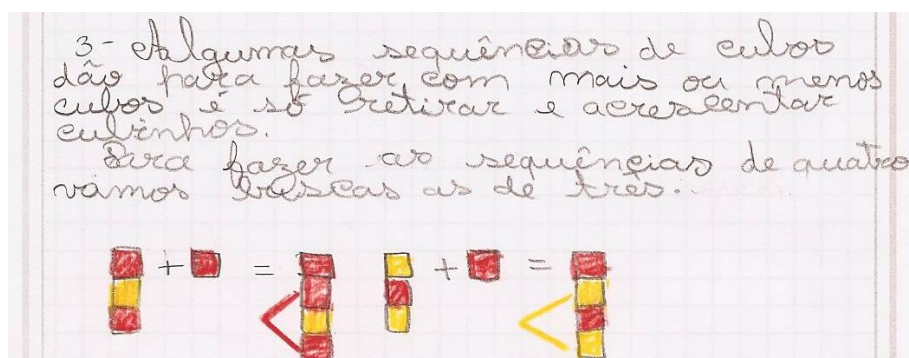 3- Algumas sequências de cubos
dão para fazer com mais ou menos
cubos é só retirar e acrescentar
cubinhos.
Para fazer as sequências de quatro
vamos buscas as de três.
+ = + =